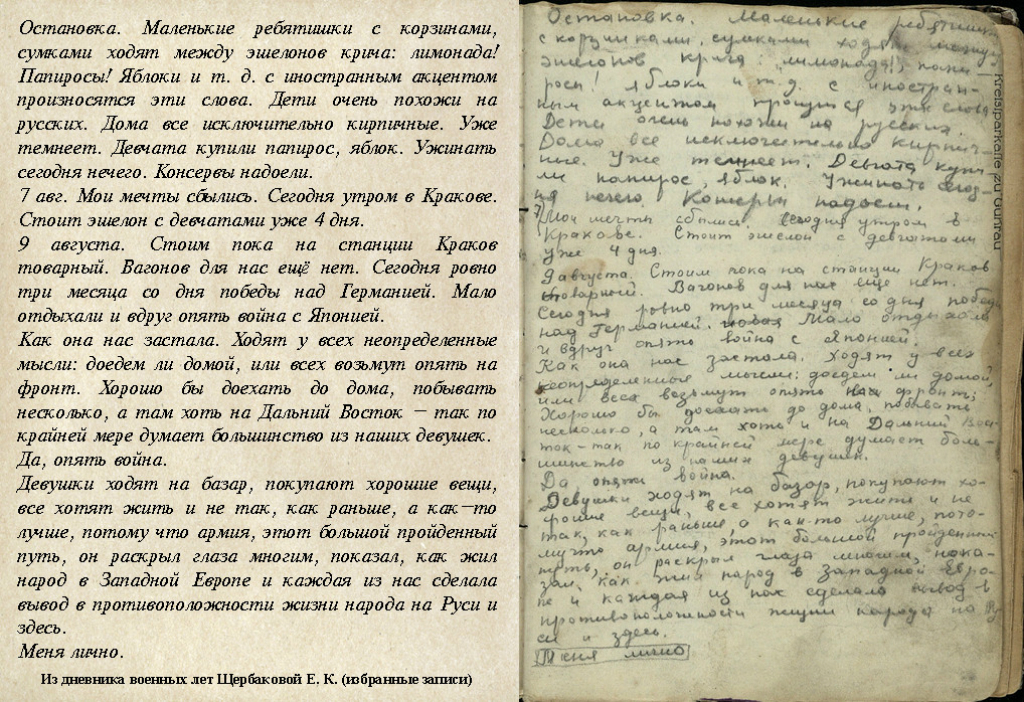 Остановка. Маленькие ребятишки с корзинами,
сумками ходят между эшелонов крича: лимонада!
Папиросы! Яблоки и т. д. с иностранным акцентом
произносятся эти слова. Дети очень похожи на
русских. Дома все исключительно кирпичные. Уже
темнеет. Девчата купили папирос, яблок. Ужинать
сегодня нечего. Консервы надоели.
7 авг. Мои мечты сбылись. Сегодня утром в Кракове.
Стоит эшелон с девчатами уже 4 дня.
9 августа. Стоим пока на станции Краков
товарный. Вагонов для нас ещё нет. Сегодня ровно
три месяца со дня победы над Германией. Мало
отдыхали и вдруг опять война с Японией.
Как она нас застала. Ходят у всех неопределенные
мысли: доедем ли домой, или всех возьмут опять на
фронт. Хорошо бы доехать до дома, побывать
несколько, а там хоть на Дальний Восток – так по
крайней мере думает большинство из наших девушек.
Да, опять война.
Девушки ходят на базар, покупают хорошие вещи,
все хотят жить и не так, как раньше, а как–то
лучше, потому что армия, этот большой пройденный
путь, он раскрыл глаза многим, показал, как жил
народ в Западной Европе и каждая из нас сделала
вывод в противоположности жизни народа на Руси и
здесь.
Меня лично.
Из дневника военных лет Щербаковой Е. К. (избранные записи)
Остановка. Маленькие ребятишки
с корзинками, сумками ходят между
эшелонов крича: лимонада!, папи
росы! яблоки и т. д. с иностран-
ным акцентом произн­ся эти слова.
Дети очень похожи на русских.
Дома все исключительно кирпич-
ные. Уже темнеет. Девчата купи
ли папирос, яблок. Ужинать сегод-
ня нечего. Консервы надоели.
7 Мои мечты сбылись. Сегодня утром в
Кракове. Стоит эшелон с девчатами
уже 4 дня.
9 августа. Стоим пока на станции Краков
товарный. Вагонов для нас еще нет.
Сегодня ровно три месяца со дня победы
над Германией. Мало отдыхали
и вдруг опять война с Японией.
Как она нас застала. Ходят у всех
неопределенные мысли: доедем ли домой,
или всех возьмут опять на фронт;
Хорошо бы доехать до дома, побывать
несколько, а там хоть и на Дальний Вос-
ток-так по крайней мере думает боль-
шинство из наших девушек.
Да опять война.
Девушки ходят на базар, покупают хо-
рошие вещи, все хотят жить и не
так, как раньше, а как-то лучше, пото-
му что армия, этот большой пройденный
путь, он раскрыл глаза многим, пока-
зал, как жил народ в Западной Евро-
пе и каждая из нас сделала вывод в
противоположности жизни народа на Ру
си и здесь.
Меня лично
Kreisparkalle zu Guhrau